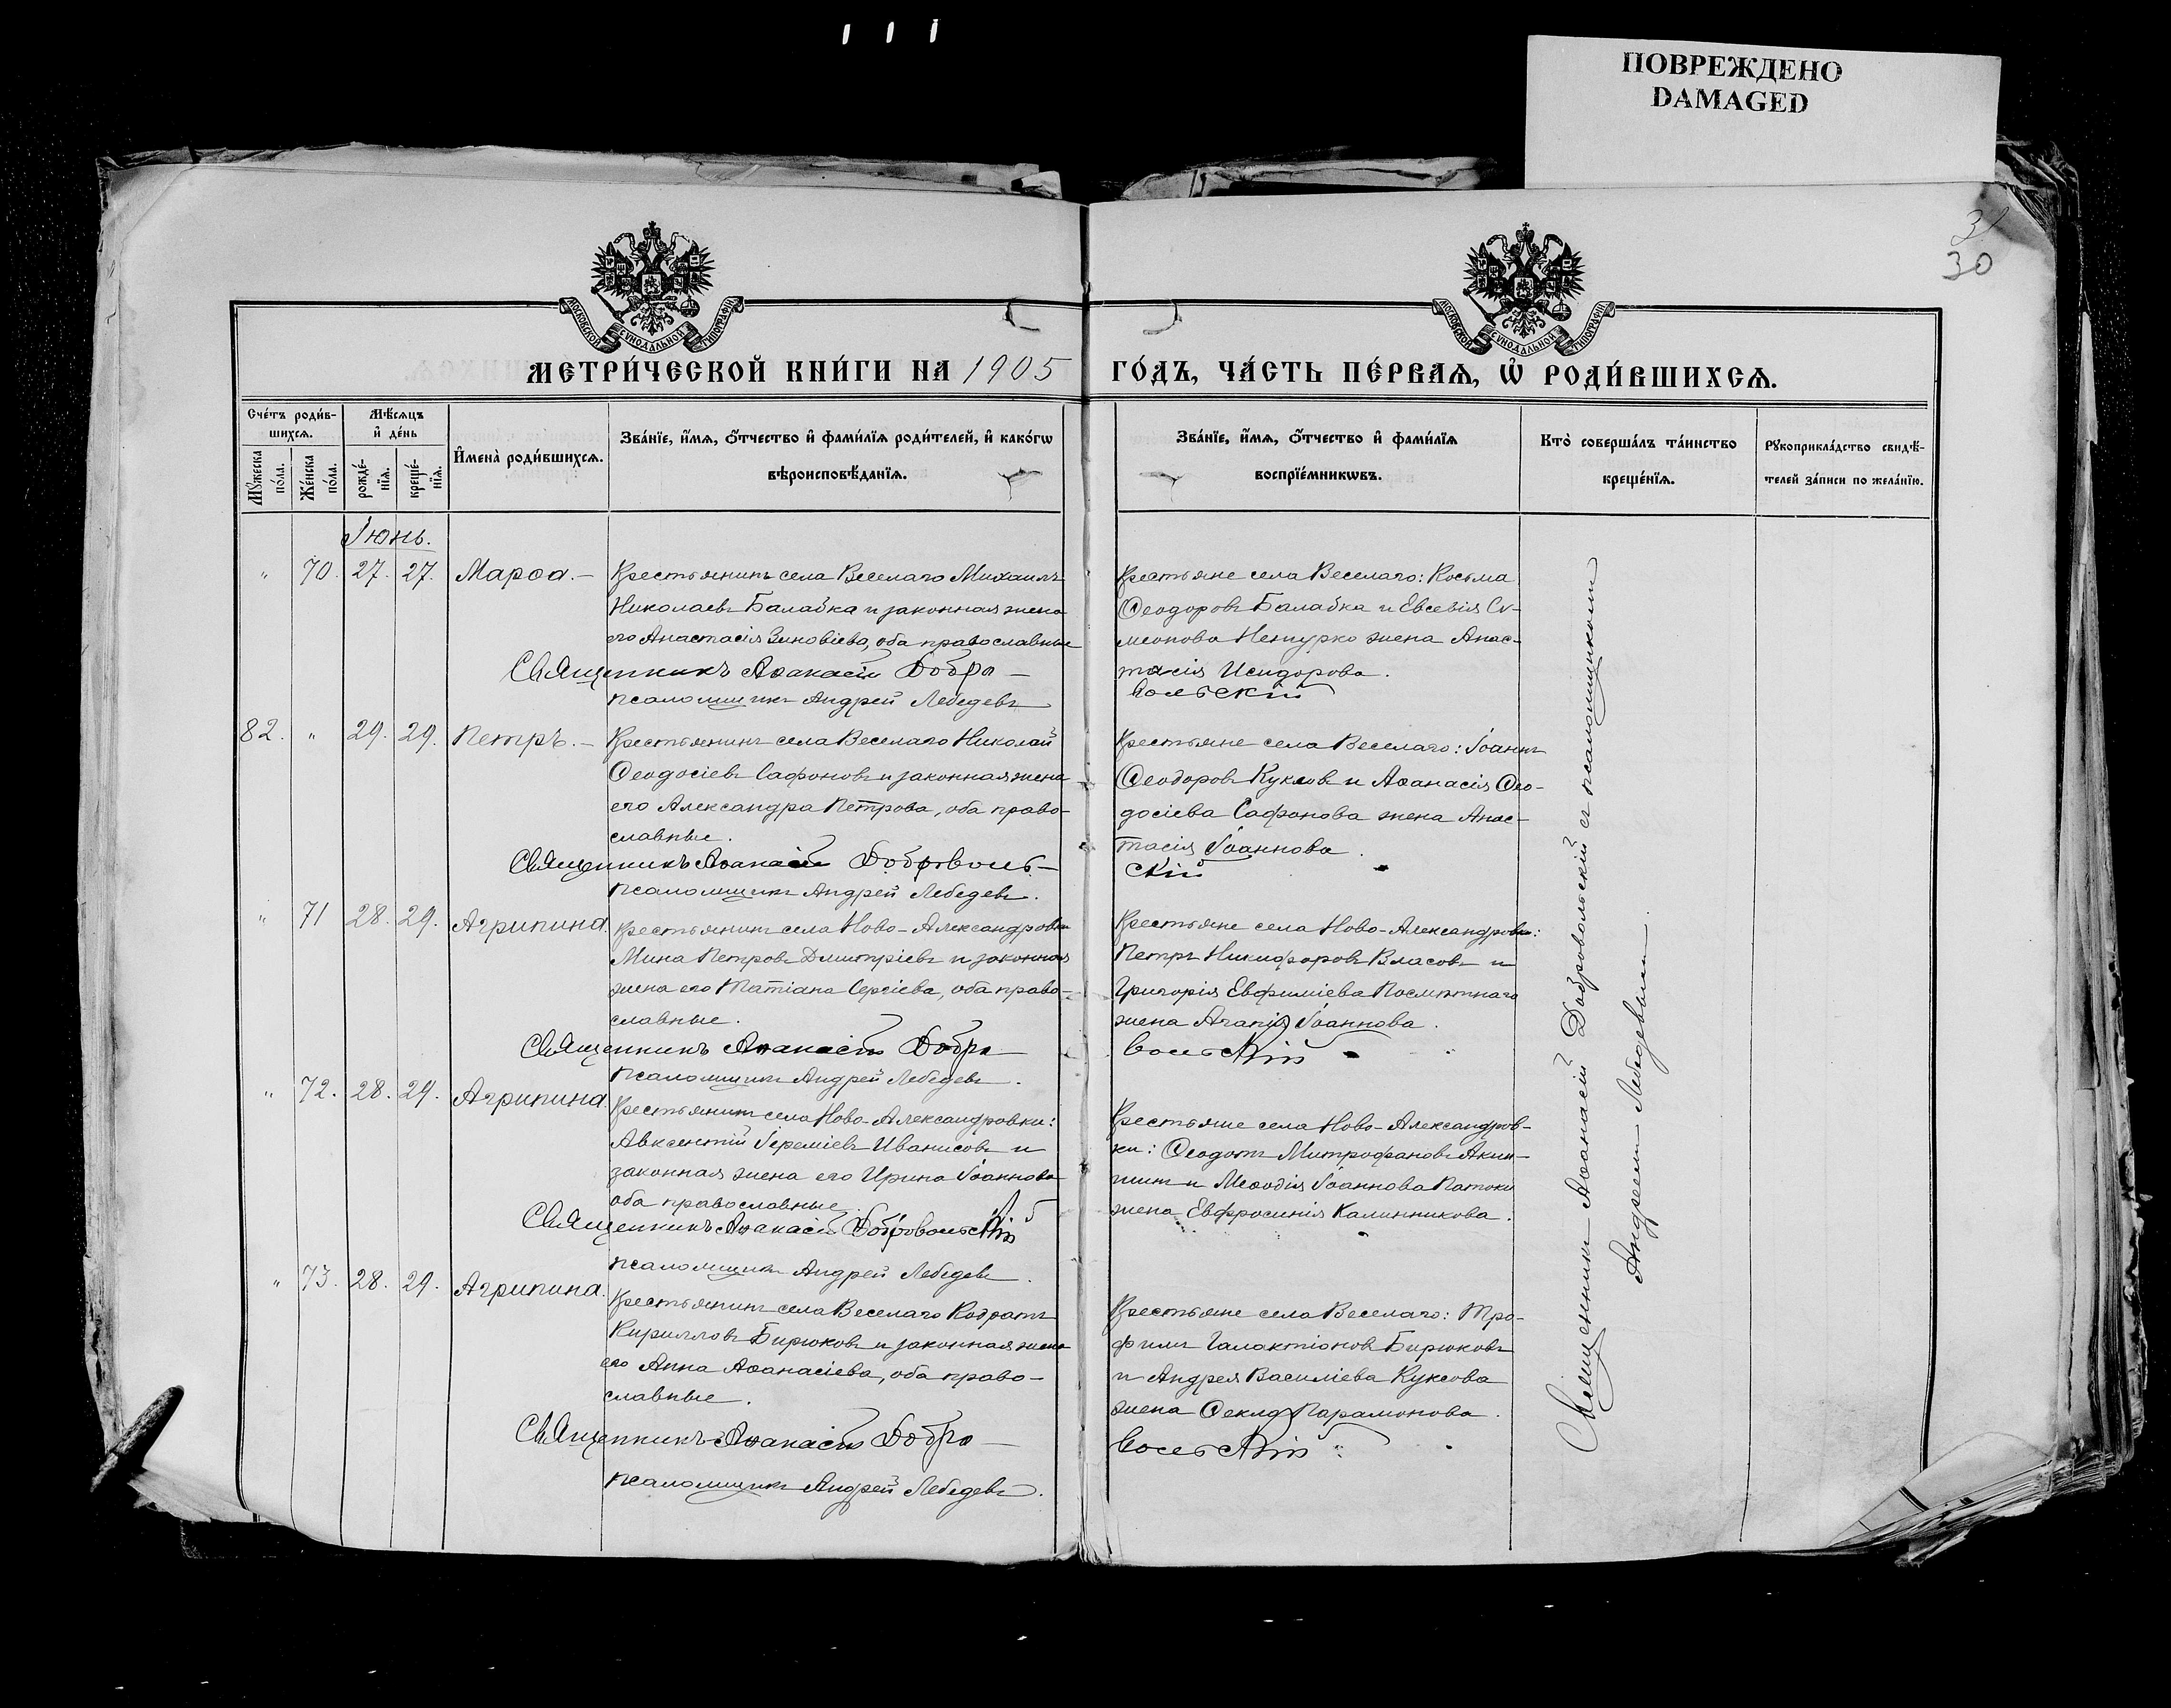 ПОВРЕЖДЕНО
DAMAGED
31
30
МОСКОВСКОЙ СѴНОДАЛЬНОЙ ТИПОГРАФІИ
МОСКОВСКОЙ СѴНОДАЛЬНОЙ ТИПОГРАФІИ
МЕТРИ́ЧЕСКОЙ КНИ́ГИ НА 1905 ГО́ДЪ, ЧА́СТЬ ПЕ́РВАѦ, Ѡ҆ РОДИ́ВШИХСѦ.
Сче́тъ роди́в-
шихсѧ.
Мꙋ́жеска по́ла.
Же́нска по́ла.
Мѣ́сѧцъ
и҆ де́нь
рожде́-
нїѧ.
креще́-
нїѧ.
И҆мена̀ роди́вшихсѧ.
Зва́нїе, и҆́мѧ, ѻ҆́тчество и҆ фами́лїѧ роди́телей, и҆ како́гѡ
вѣроисповѣ́данїѧ.
Зва́нїе, и҆́мѧ, ѻ҆́тчество и҆ фами́лїѧ
воспрїе́мникѡвъ.
Кто̀ соверша́лъ та́инство
креще́нїѧ.
Рꙋкоприкла́дство свидѣ́-
телей за́писи по жела́нїю.
Іюнь.
" 70. 27. 27. Марѳа. –
Крестьянинъ села Веселаго Михаилъ
Николаевъ Балабка и законная жена
его Анастасія Зиновіева, оба православные
Священникъ Аѳанасій Добро –
псаломщикъ Андрей Лебедевъ
Крестьяне села Веселаго: Косьма
Ѳеодоровъ Балабка и Евсевія Си-
меонова жена Анас-
тасія Исидорова.
вольскій
82. " 29. 29. Петръ. –
Крестьянинъ села Веселаго Николай
Ѳеодосіевъ Сафоновъ и законная жена
его Александра Петрова, оба право-
славные.
Священникъ Аѳанасій Доброволь –
псаломщикъ Андрей Лебедевъ.
Крестьяне села Веселаго: Іоаннъ
Ѳеодоровъ Куксов и Аѳанасія Ѳео-
досіева Сафонова жена Анас-
тасія Іоаннова.
скій
" 71 28. 29. Агрипина.
Крестьянинъ села Ново-Александровки
Мина Петровъ Дмитріевъ и законная
жена его Татіана Сергіева, оба право-
славные.
Священникъ Аѳанасій Добро –
псаломщикъ Андрей Лебедевъ.
Крестьяне села Ново-Александровки:
Петръ Никифоровъ Власовъ и
Григорія Евфиміева
жена Агапія Іоаннова.
вольскій
" 72. 28. 29. Агрипина.
Крестьянинъ села Ново-Александровки:
Авксентій Іереміевъ Иванисовъ и
законная жена его Ирина Іоаннова
оба православные.
Священникъ Аѳанасій Добровольскій
псаломщикъ Андрей Лебедевъ.
Крестьяне села Ново-Александров-
ки: Ѳеодотъ Митрофановъ Акин-
шинъ и Меѳодія Іоаннова Патоки
жена Евфросинія Калинникова.
" 73. 28. 29. Агрипина.
Крестьянинъ села Веселаго Кодратъ
Кирилловъ Бирюковъ и законная жена
его Анна Аѳанасіева, оба право-
славные.
Священникъ Аѳанасій Добро –
псаломщикъ Андрей Лебедевъ.
Крестьяне села Веселаго: Тро-
фимъ Галактіоновъ Бирюковъ
и Андрея Василіева Куксова
жена Ѳекла Парамонова.
вольскій
Священникъ Аѳанасій Добровольскій съ псаломщикомъ
Андреемъ Лебедевымъ.